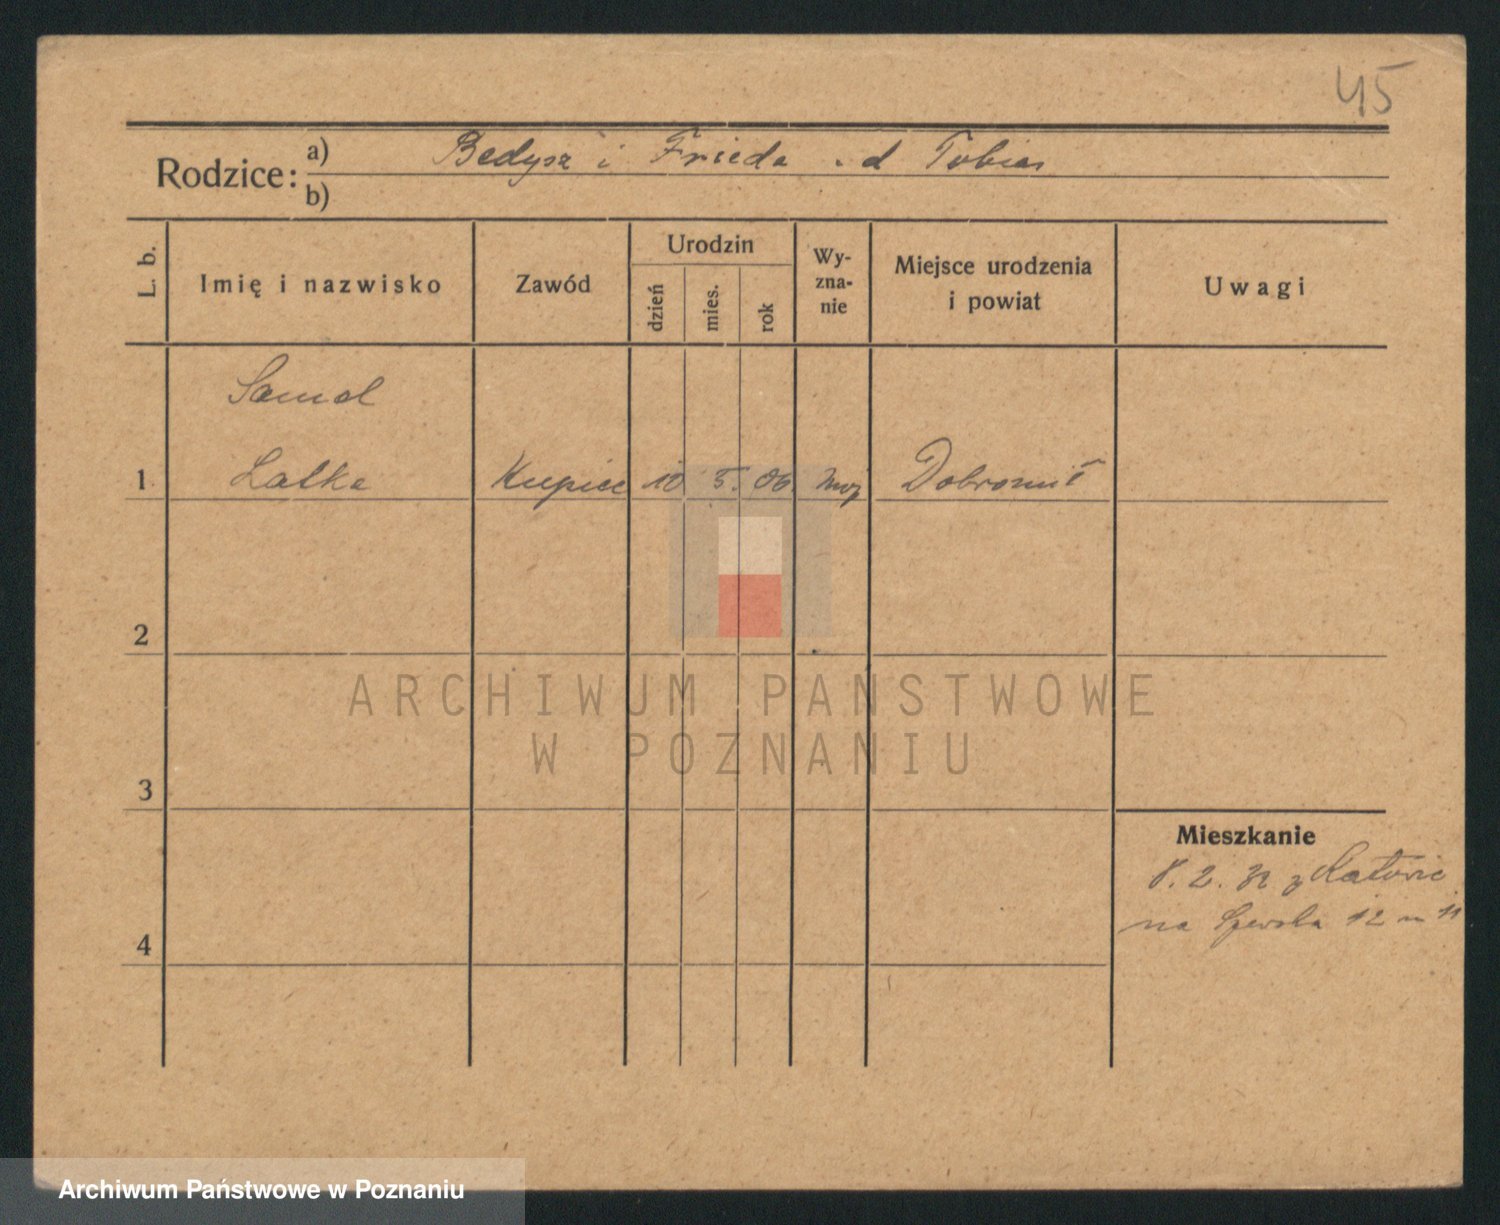 45
Rodzice: a) Bedysz i Frieda . d Tobias
b)
L. b.
Imię i nazwisko
Zawód
Urodzin
dzień
mies.
rok
Wy-
zna-
nie
Miejsce urodzenia
i powiat
Uwagi
Samel
1 Latka Kupiec 10 5. 06 moj Dobromil
2
ARCHIWUM PAŃSTWOWE
W POZNANIU
3
Mieszkanie
2. z Katowic
na Szewska 12 m 11
4
Archiwum Państwowe w Poznaniu